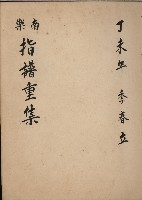 丁未年 季春立
南樂
指譜重集